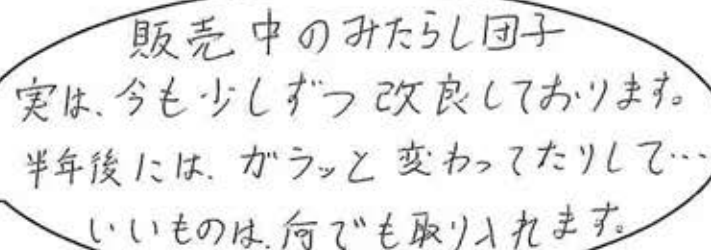 販売中のみたらし団子
実は、今も少しずつ改良しております。
半年後には、ガラッと変わってたりして…
いいものは、何でも取り入れます。